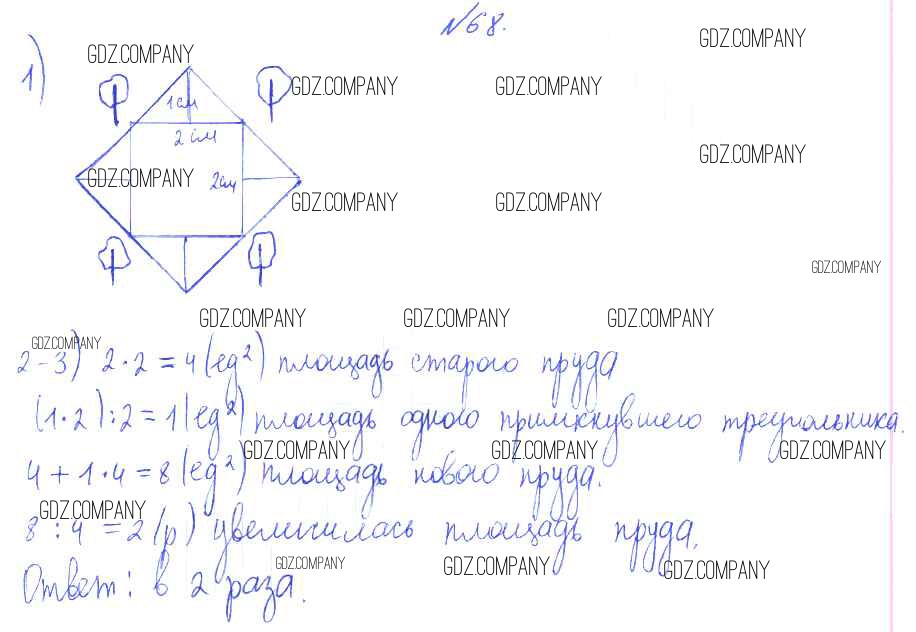 №68.
GDZ.COMPANY
GDZ.COMPANY
1)
GDZ.COMPANY GDZ.COMPANY
1 см
2 см
GDZ.COMPANY
GDZ.COMPANY 2см
GDZ.COMPANY GDZ.COMPANY
GDZ.COMPANY
GDZ.COMPANY GDZ.COMPANY GDZ.COMPANY
GDZ.COMPANY
2-3) 2·2=4(ед²) площадь старого пруда
(1·2):2=1(ед²) площадь одного примкнувшего треугольника.
GDZ.COMPANY GDZ.COMPANY GDZ.COMPANY
4+1·4=8(ед²) площадь нового пруда.
GDZ.COMPANY
8:4=2(р) увеличилась площадь пруда.
GDZ.COMPANY GDZ.COMPANY GDZ.COMPANY
Ответ: в 2 раза.